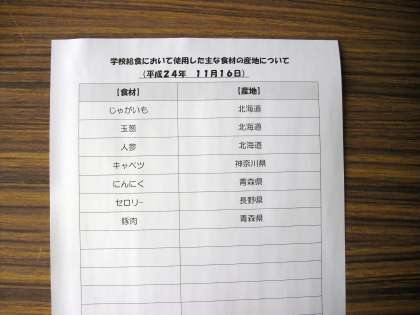 学校給食において使用した主な食材の産地について
（平成２４年　１１月１６日）
【食材】 【産地】
じゃがいも 北海道
玉葱 北海道
人参 北海道
キャベツ 神奈川県
にんにく 青森県
セロリー 長野県
豚肉 青森県